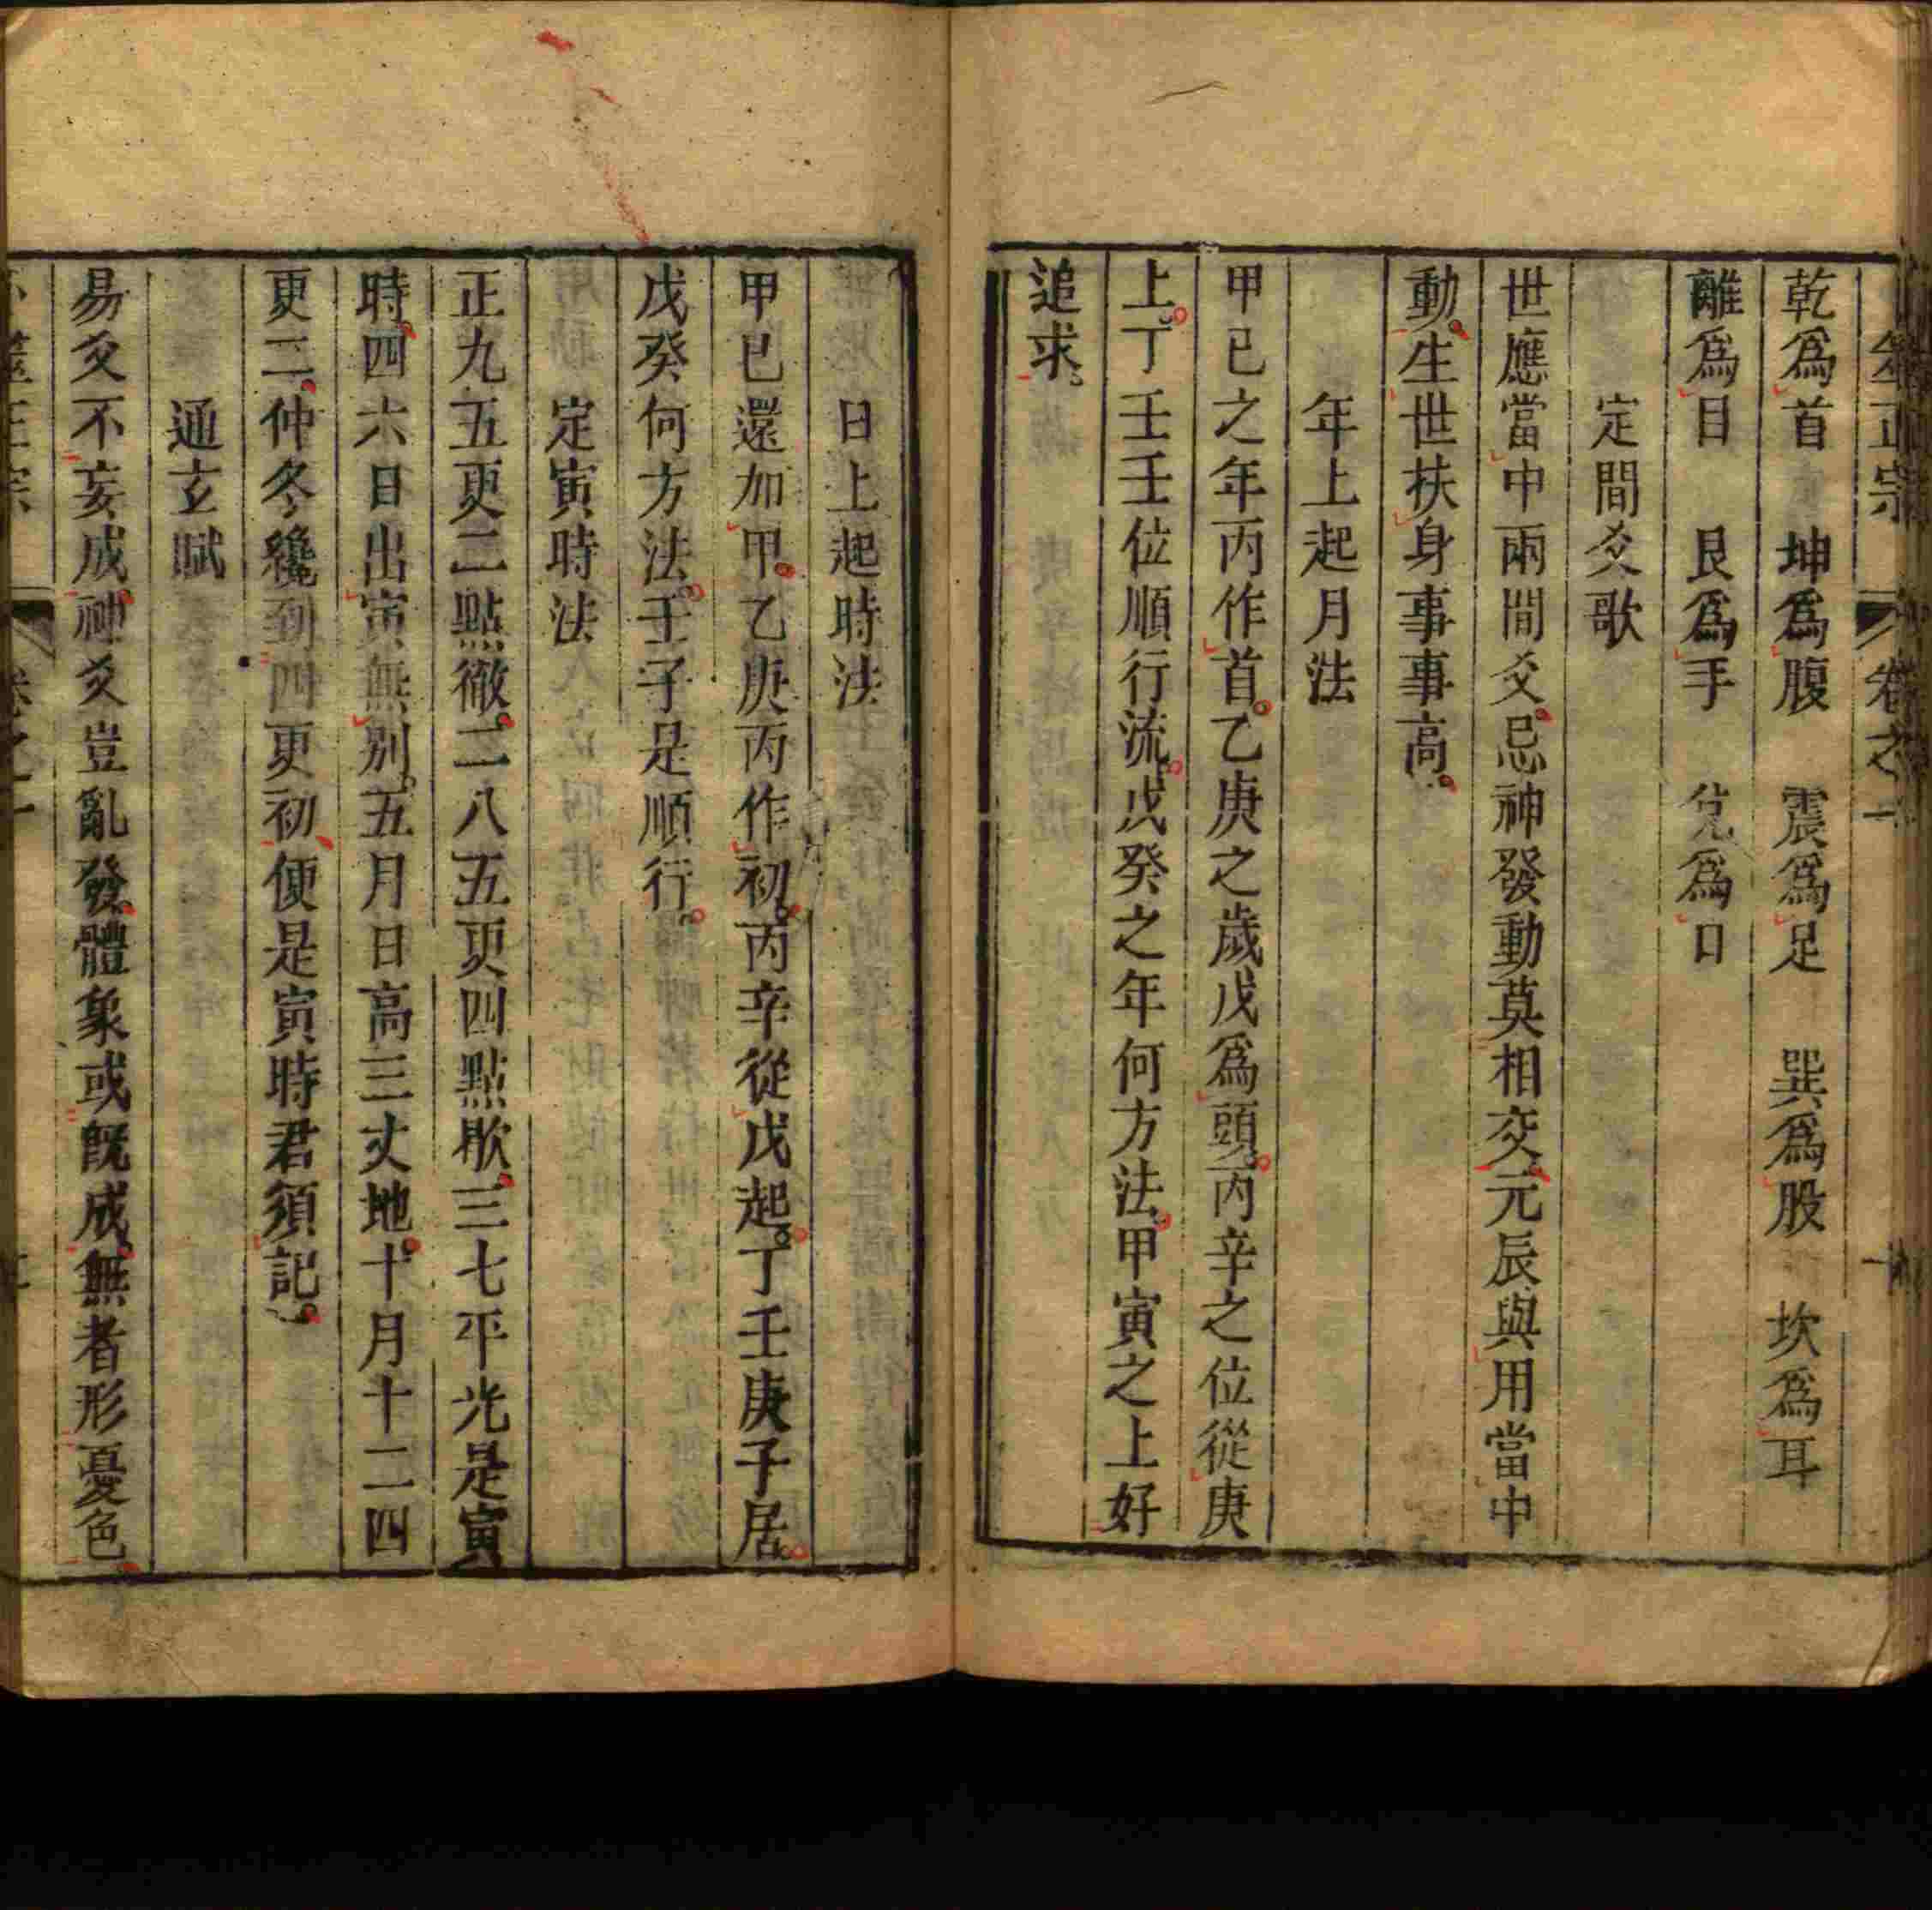 正宗 卷之一
乾爲首 坤爲腹 震爲足 巽爲股 坎爲耳
離爲目 艮爲手 兌爲口
定間爻歌
世應當中兩間爻。忌神發動莫相交。元辰與用當中
動。生世扶身事事高。
年上起月法
甲己之年丙作首。乙庚之歲戊爲頭。丙辛之位從庚
上。丁壬壬位順行流。戊癸之年何方法。甲寅之上好
追求。
日上起時法
甲已還加甲。乙庚丙作初。丙辛從戊起。丁壬庚子居。
戊癸何方法。壬子是順行。
定寅時法
正九五更二點徹。二八五更四點歇。三七平光是寅
時。四六日出寅無別。五月日高三丈地。十月十二四
更二。仲冬纔到四更初、便是寅時君須記。
通玄賦
易爻不妄成。神爻豈亂發。體象或旣成。無者形憂色。
正宗